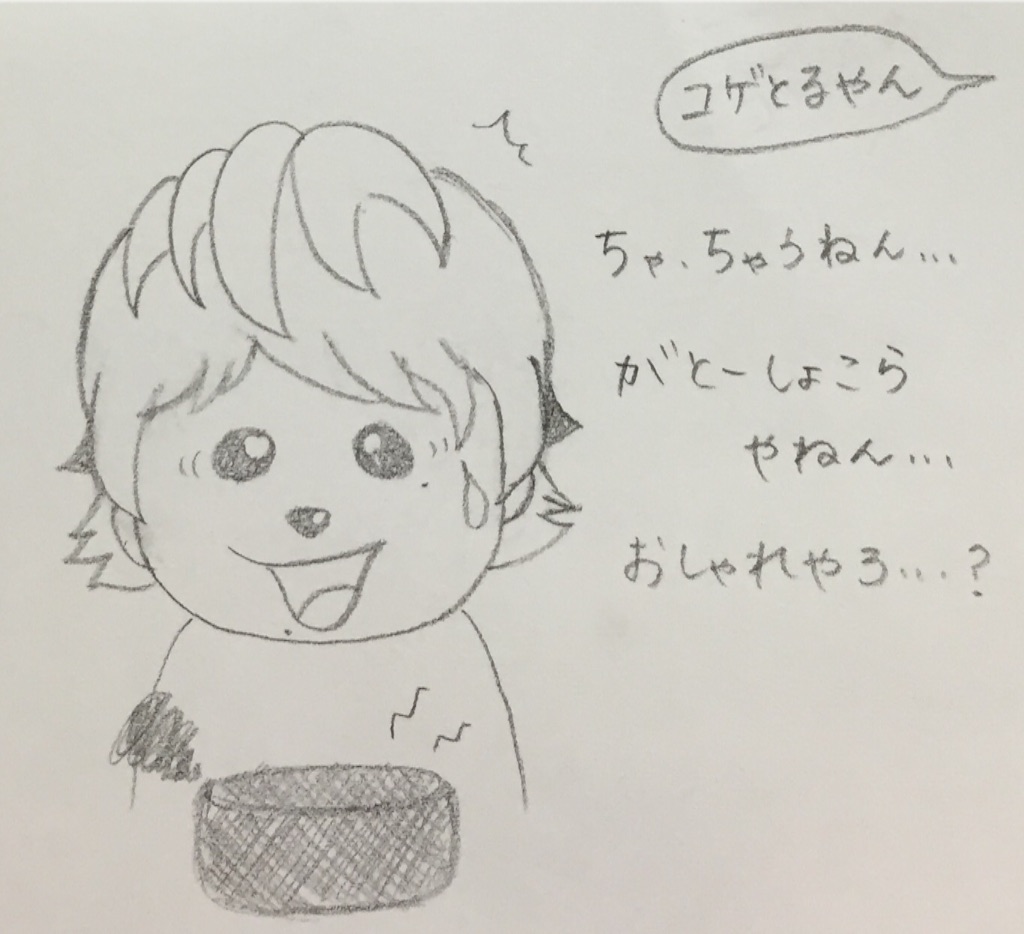 コゲとるやん
ちゃ、ちゃうねん…
がとーしょこら
やねん…
おしゃれやろ…?